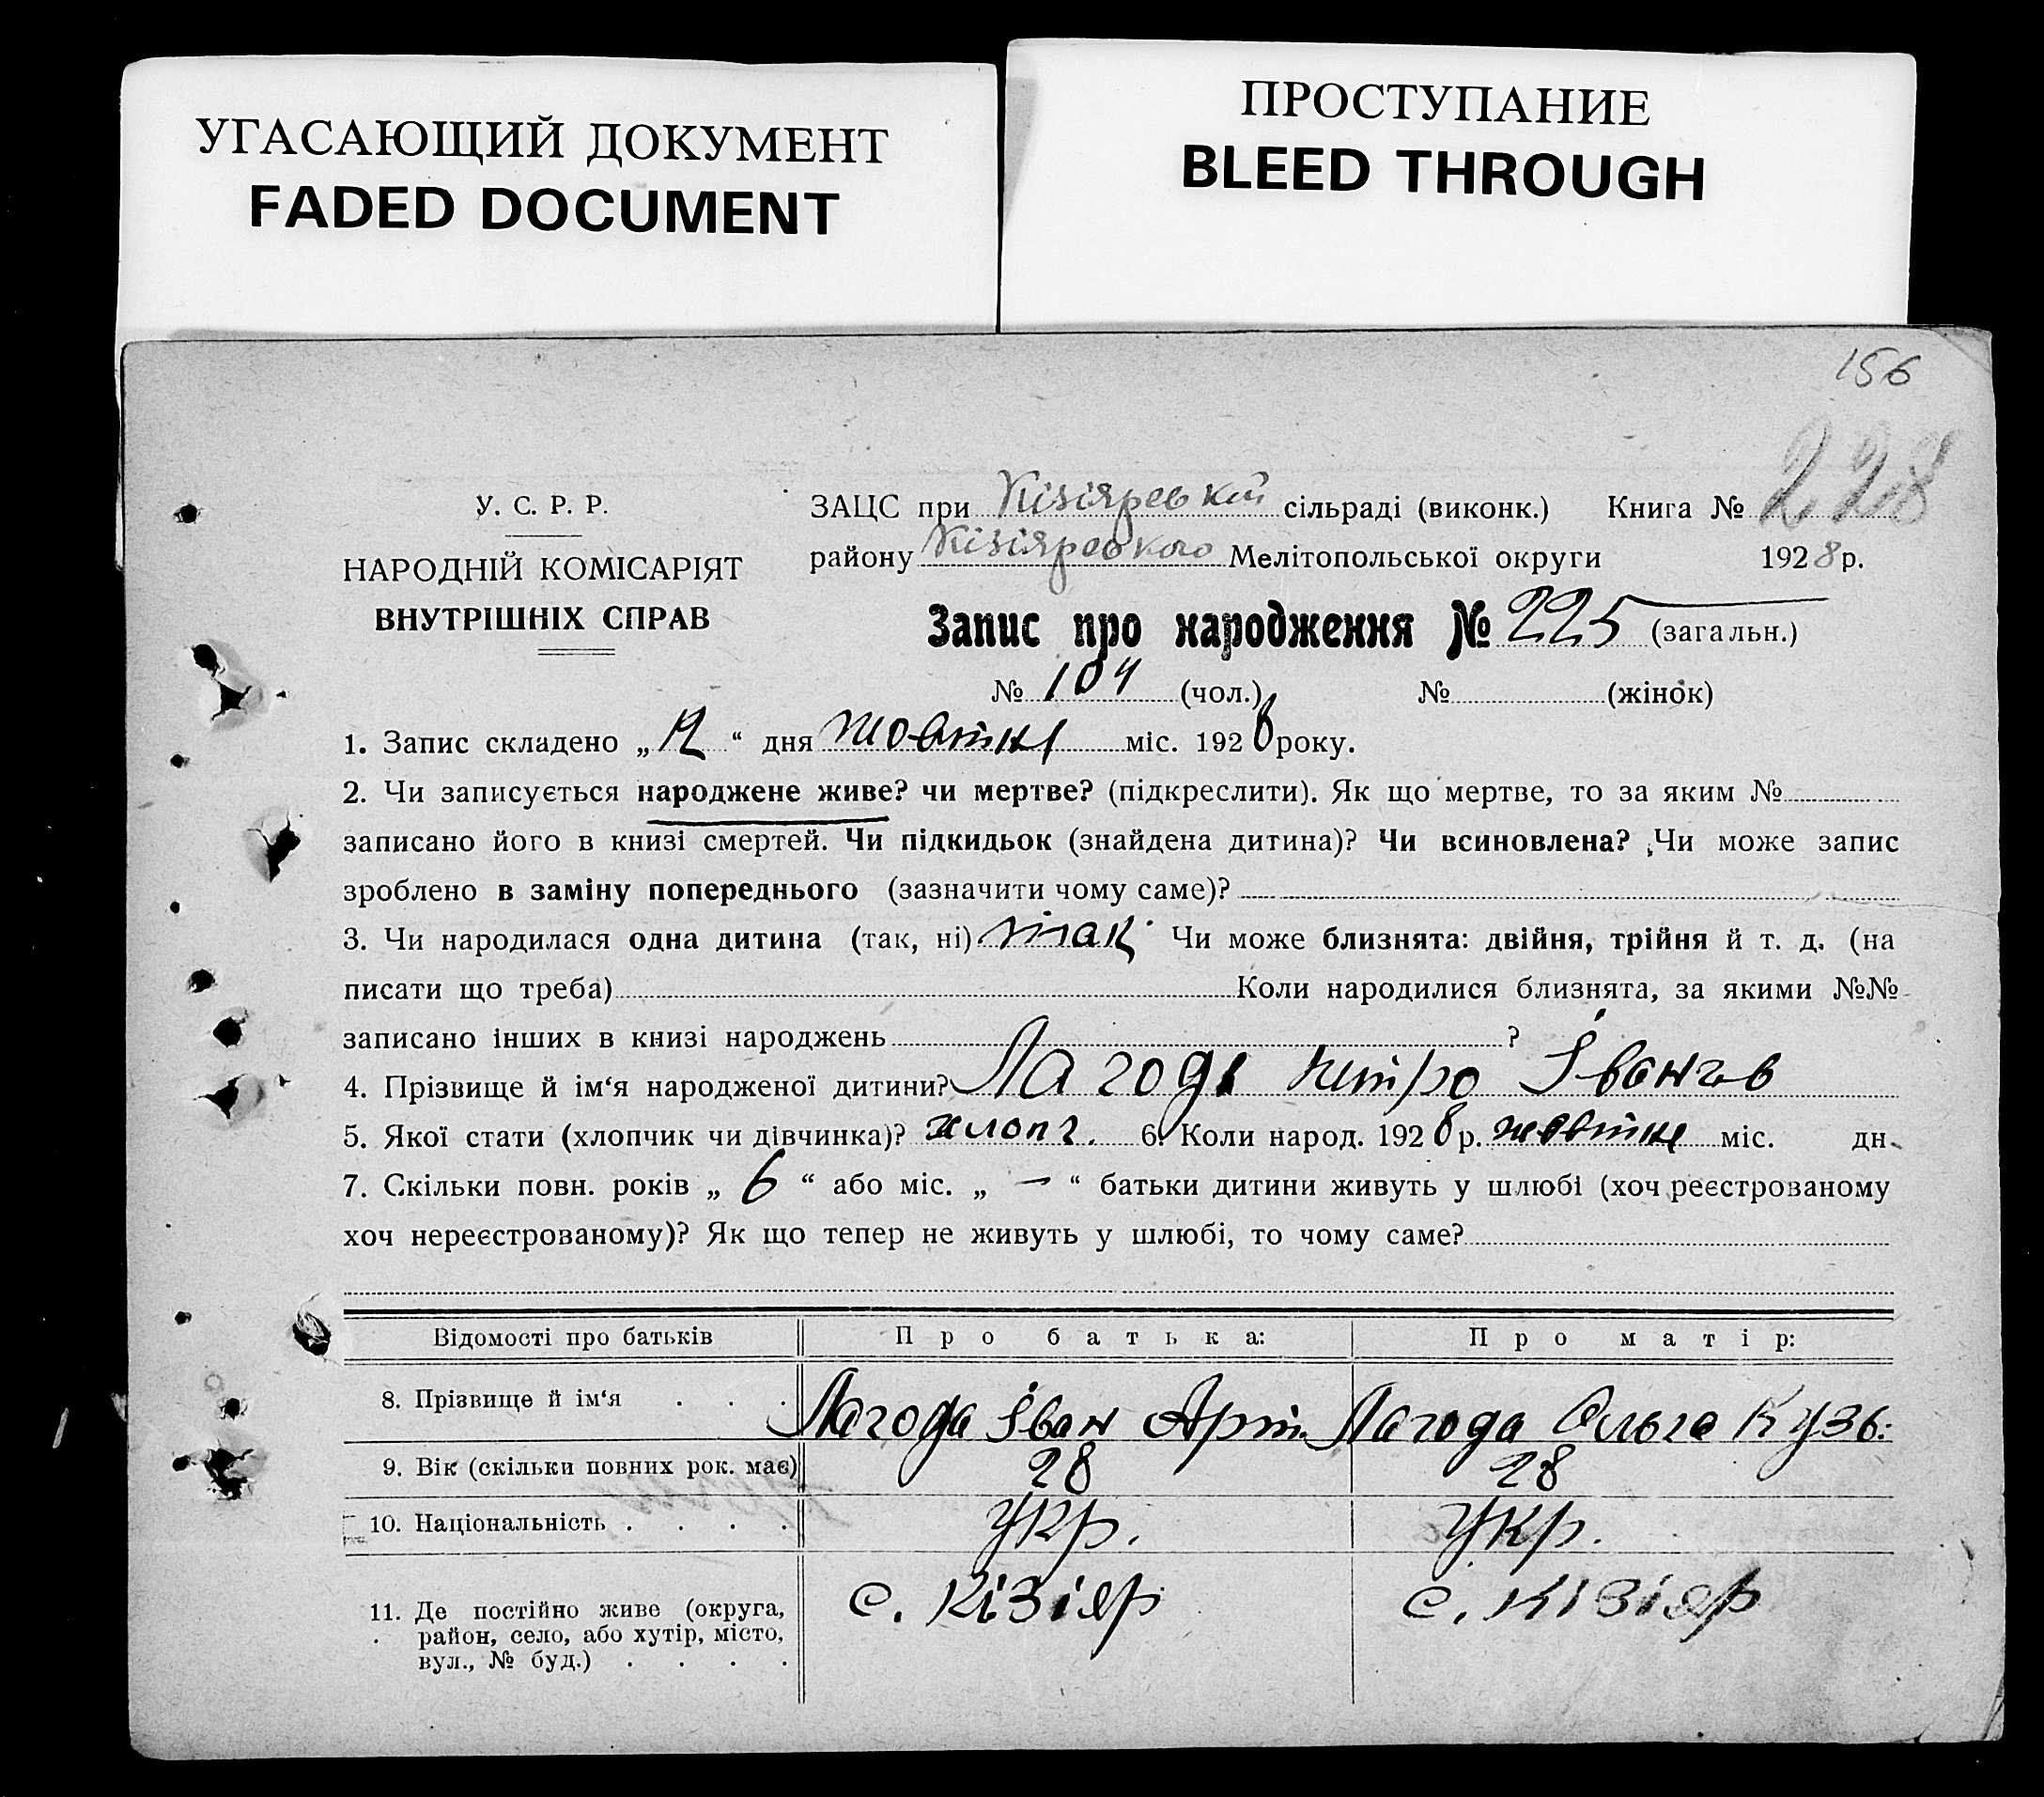 УГАСАЮЩИЙ ДОКУМЕНТ
FADED DOCUMENT
ПРОСТУПАНИЕ
BLEED THROUGH
156
У. С. Р. Р.
НАРОДНІЙ КОМІСАРІЯТ
ВНУТРІШНІХ СПРАВ
ЗАЦС при Кізіяревкій сільраді (виконк.) Книга № 228
району Кізіяревкого Мелітопольської округи 1928 р.
Запис про народження № 225 (загальн.)
№ 104 (чол.) № (жінок)
1. Запис складено „ “ дня жовтня міс. 1928 року.
2. Чи записується народжене живе? чи мертве? (підкреслити). Як що мертве, то за яким №
записано його в книзі смертей. Чи підкидьок (знайдена дитина)? Чи всиновлена? Чи може запис
зроблено в заміну попереднього (зазначити чому саме)?
3. Чи народилася одна дитина (так, ні) так Чи може близнята: двійня, трійня й т. д. (на
писати що треба) Коли народилися близнята, за якими №№
записано інших в книзі народжень ?
4. Прізвище й ім‘я народженої дитини? Лагода Петро Іванов
5. Якої стати (хлопчик чи дівчинка)? хлопч. 6. Коли народ. 1928 р. жовтня міс. дн.
7. Скільки повн. років „ 6 “ або міс. „ — “ батьки дитини живуть у шлюбі (хоч реєстрованому
хоч нереєстрованому)? Як що тепер не живуть у шлюбі, то чому саме?
Відомості про батьків Про батька: Про матір:
8. Прізвище й ім‘я . . . Лагода Іван Арт. Лагода Ольга Кузь:
9. Вік (скільки повних рок. має) 28 28
10. Національність . . . . Укр. Укр.
11. Де постійно живе (округа, с. Кізіяр с. Кізіяр
район, село, або хутір, місто,
вул., № буд.) . . . .